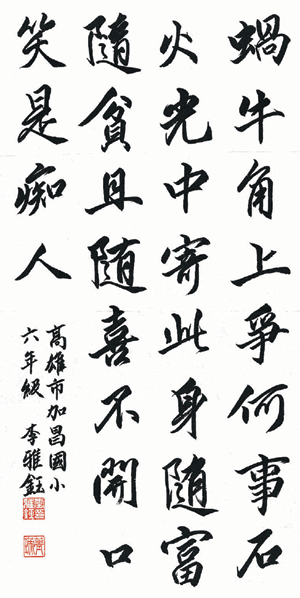 蝸牛角上爭何事石
火光中寄此身随富
隨貧且随喜不開口
笑是痴人
高雄市加昌國小
六年級 李雅鈺